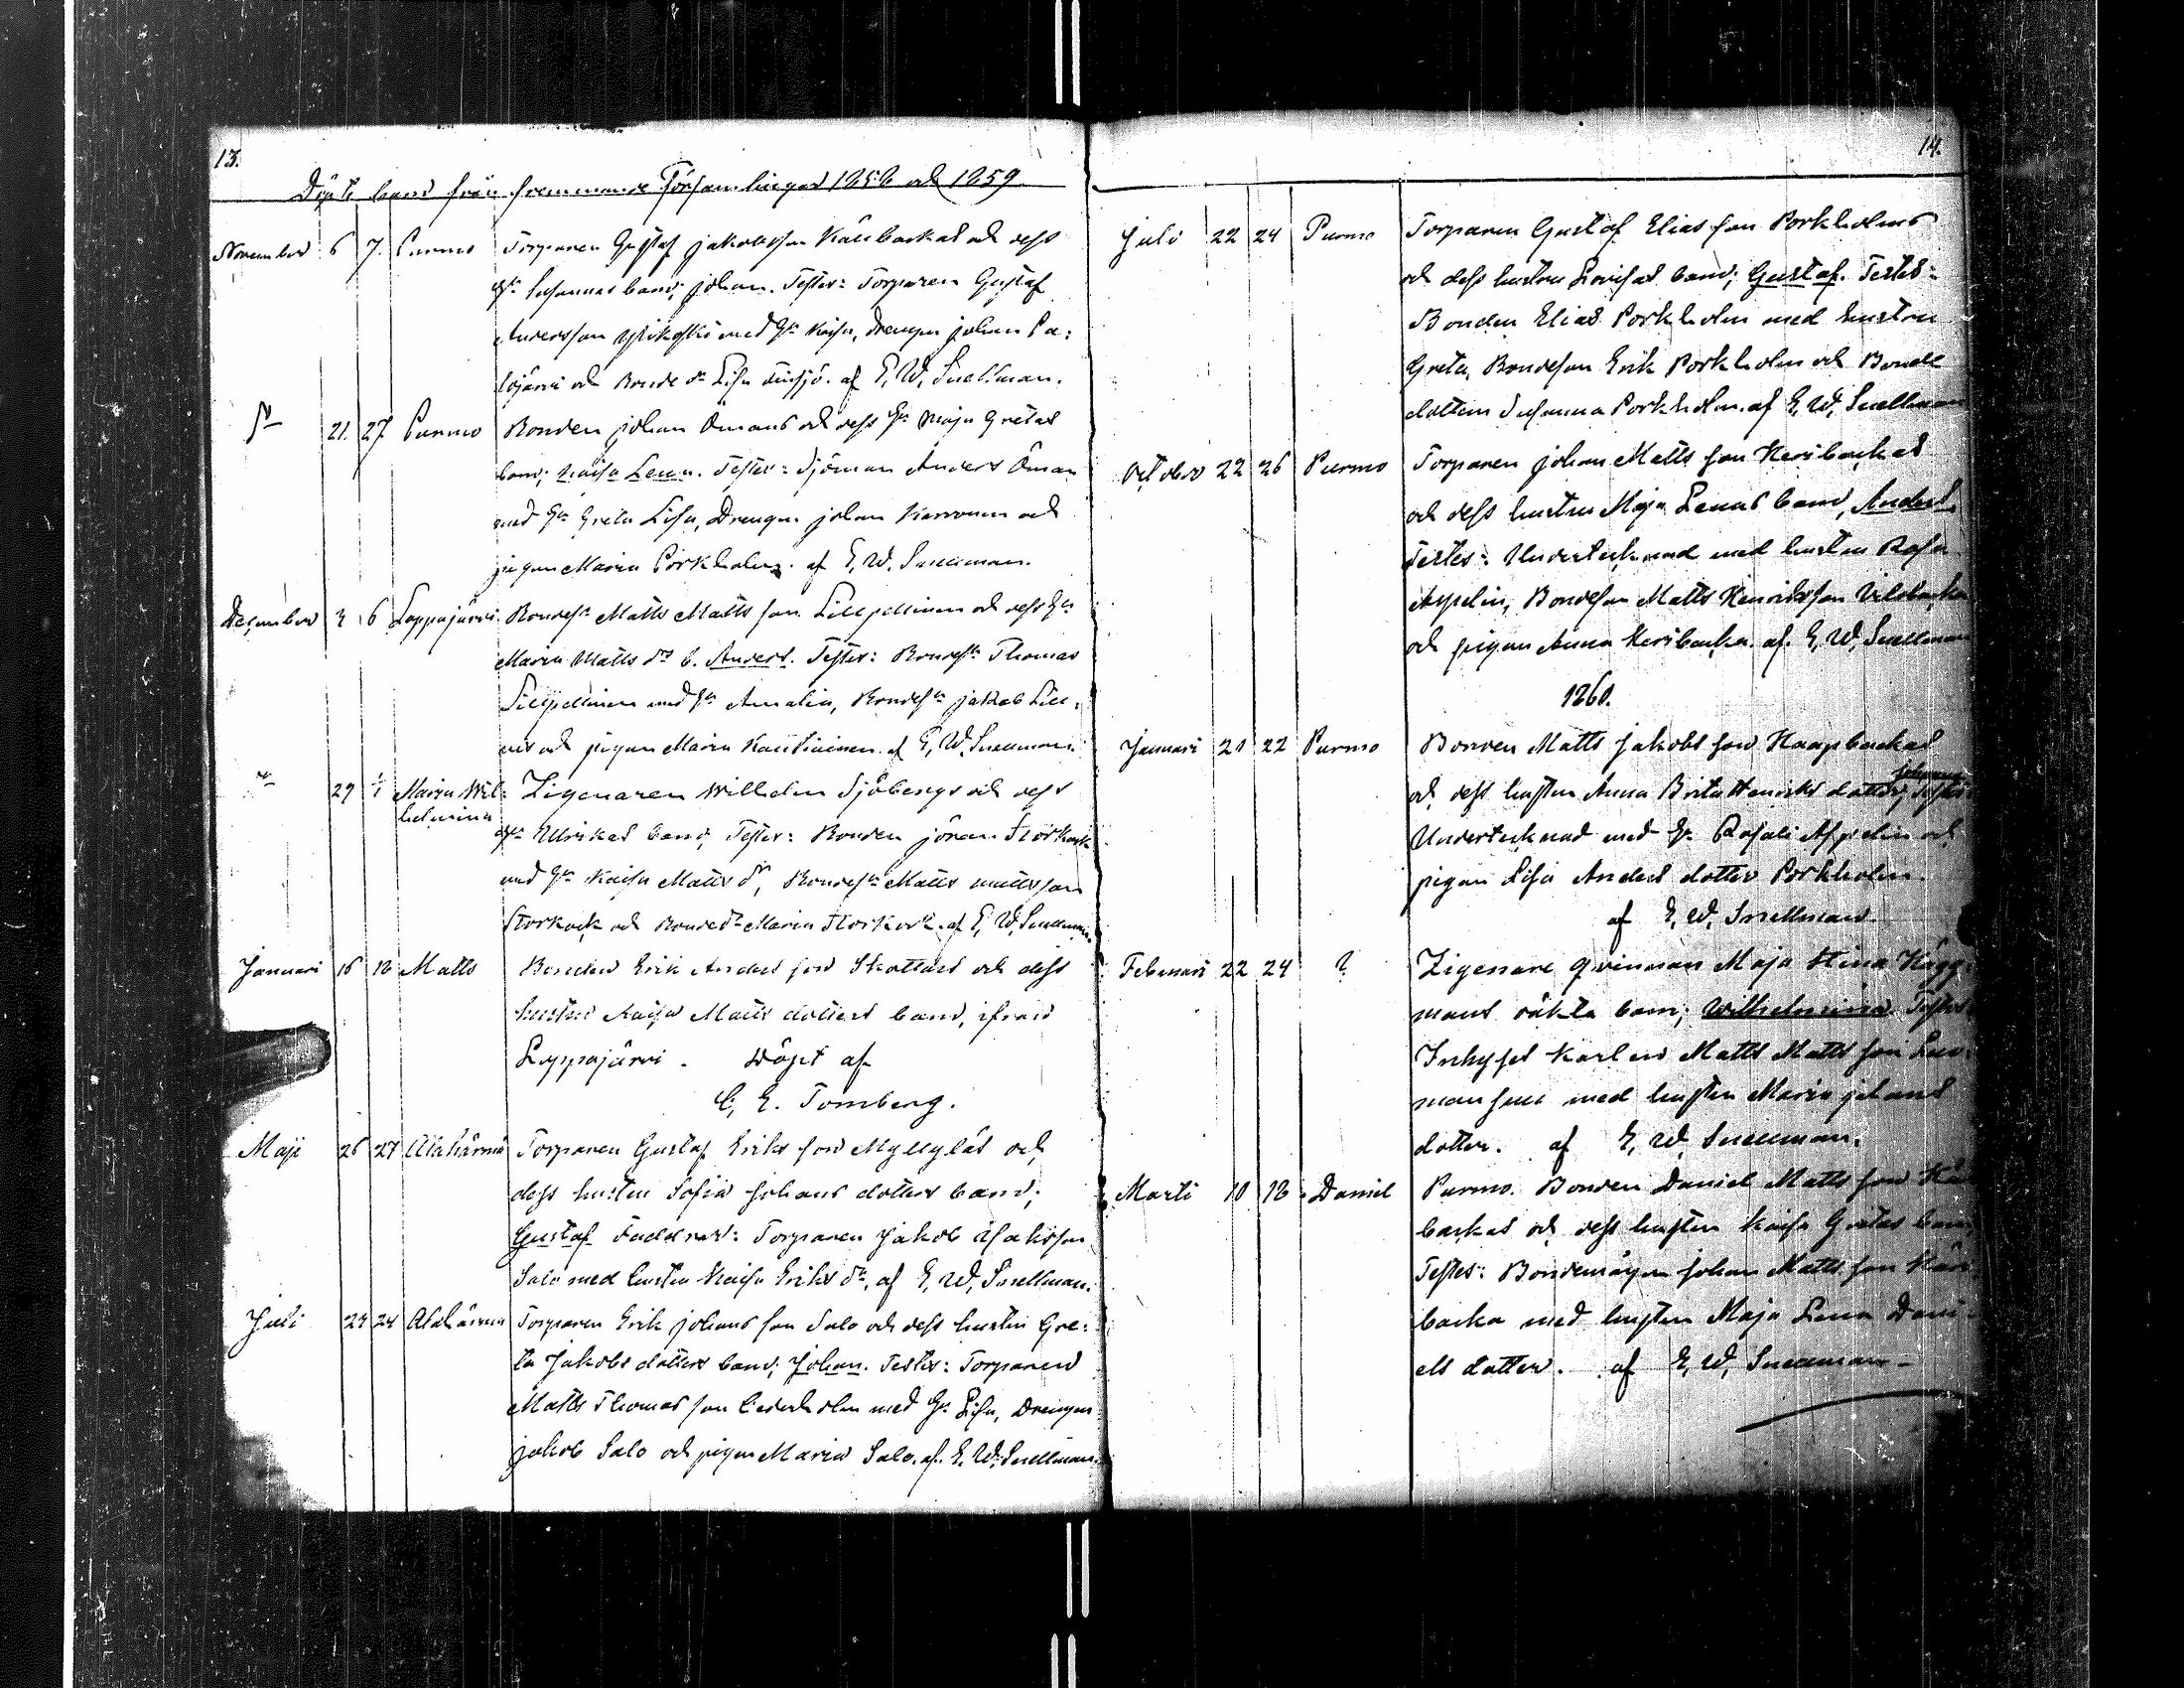 13.
Döpte barn från fremmande Församlingar 1858 och 1859
November 6 7. Purmo Torparen Gustaf Jakobsson Källbackas och dess
Hu Susannas barn; Johan. Testes: Torparen Gustaf
Andersson med Hu Kaisa, Drengen Johan Pa-
lojärvi och Bonde dr Lisa af E. W. Snellman.
D:o 21. 27 Purmo Bonden Johan Ömans och dess Hu Maja Gretas
barn; Kaisa Lena. Testes: Sjöman Anders Öman
med Hu Greta Lisa, Drengen Johan och
pigan Maria Porkholm. af E. W. Snellman.
December 3 6 Lappajärvi Bondesn Matts Matts son och dess Hu
Maria Matts drs b. Anders. Testes: Bondesn Thomas
med Hu Amalia, Bondesn Jakob
och pigan Maria af E. W. Snellman.
29 1/1 Maria Wil-
helmina Zigenaren Willhelm Sjöbergs och dess
Hu Ulrikas barn; Testes: Bonden Johan Storkock
med Hu Kaisa Matts dr, Bondesn Matts Mattsson
Storkock och Bondedr Maria Storkock. af E. W. Snellman.
Januari 16 18 Matts Bonden Erik Anders son och dess
hustru Kaisa Matts dotters barn, ifrån
Lappajärvi. Döpt af
C. E. Tomberg.
Maji 26 27 Alahärmä Torparen Gustaf Eriks son Myllyläs och
dess hustru Sofia Johans dotters barn;
Gustaf Faddrar: Torparen Jakob Isaksson
Salo med hustru Kaisa Eriks dr. af E. W. Snellman.
Juli 23 24 Alahärmä Torparen Erik Johans son Salo och dess hustru Gre-
ta Jakobs dotters barn; Johan. Testes: Torparen
Matts Thomas son Cederholm med Hu Lisa, Drengen
Jakob Salo och pigan Maria Salo. af. E. W. Snellman.
14.
Juli 22 24 Purmo Torparen Gustaf Elias son Porkholms
och dess hustru Lovisas barn; Gustaf. Testes:
Bonden Elias Porkholm med hustru
Greta, Bondeson Erik Porkholm och Bonde
dottern Susanna Porkholm. af E. W. Snellman
October 22 26 Purmo Torparen Johan Matts son Kersbackas
och dess hustru Maja Lenas barn, Anders.
Testes: Undertecknad med hustru Rosa
Aspelin, Bondeson Matts Henriksson
och pigan Anna Kersbacka. af. E. W. Snellman
1860.
Januari 21 22 Purmo Bonden Matts Jakobs son Haapbackas
och dess hustru Anna Brita Henriks dotter, Johanna Testes
Undertecknad med Hu Rosali Aspelin och
pigan Lisa Anders dotter Porkholm.
af E. W. Snellman.
Februari 22 24 ? Zigenare qvinnan Maja Stina Hägg-
mans oäkta barn; Wilhelmina. Testes
Inhyses Karlen Matts Matts son
med hustru Maria Johans
dotter. af E. W. Snellman.
Marti 10 18 Daniel Purmo. Bonden Daniel Matts son
backas och dess hustru Kaisa Gretas barn
Testes: Bondemågen Johan Matts son
backa med hustru Maja Lena Dani-
els dotter. af E. W. Snellman -